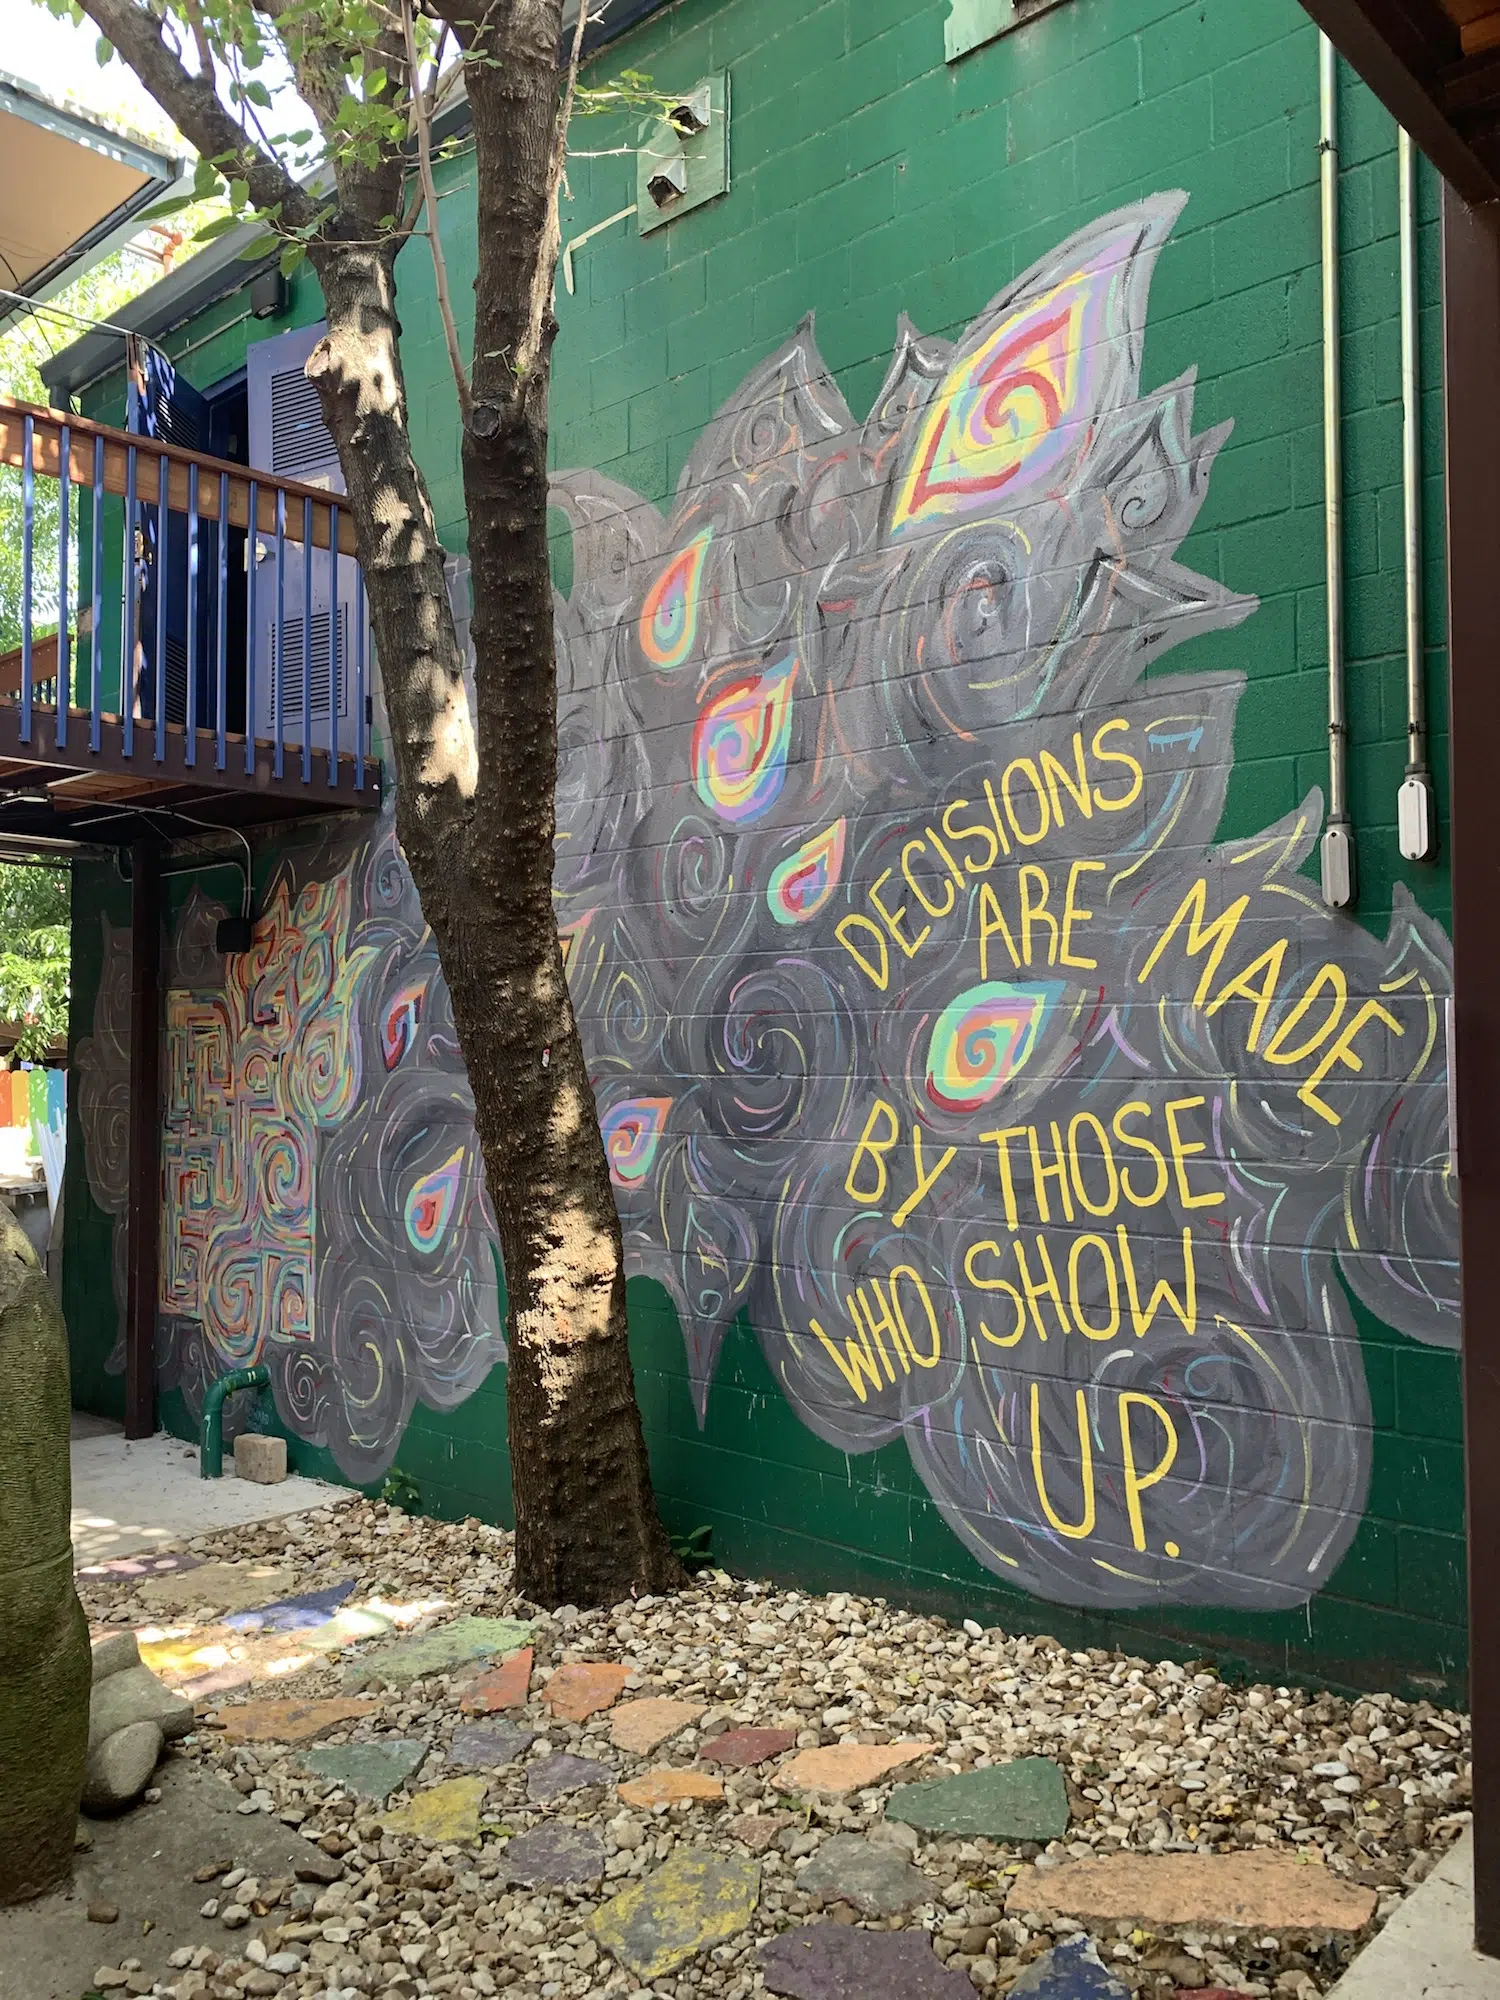 DECISIONS
ARE MADE
BY THOSE
WHO SHOW
UP.